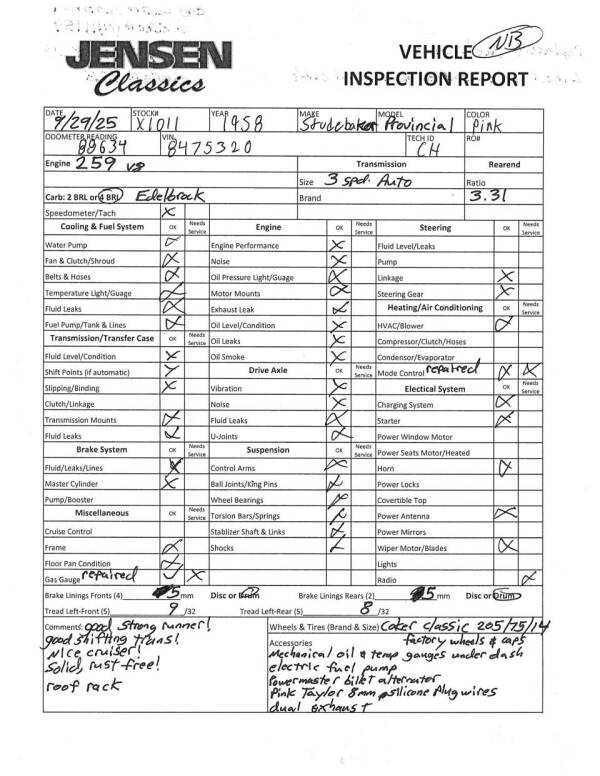 JENSEN
Classics
VEHICLE
NB
INSPECTION REPORT
DATE 9/29/25 STOCK# X1011 YEAR 1958 MAKE Studebaker MODEL Provincial COLOR Pink
ODOMETER READING 88634 VIN 8475320 TECH ID CH RO#
Engine 259 V8 Transmission Rearend
Size 3 spd. Auto Ratio
Carb: 2 BRL or 4 BRL Edelbrock Brand 3.31
Speedometer/Tach X
Cooling & Fuel System OK Needs Service Engine OK Needs Service Steering OK Needs Service
Water Pump Engine Performance X Fluid Level/Leaks
Fan & Clutch/Shroud Noise X Pump
Belts & Hoses Oil Pressure Light/Guage Linkage X
Temperature Light/Guage Motor Mounts Steering Gear X
Fluid Leaks Exhaust Leak Heating/Air Conditioning OK Needs Service
Fuel Pump/Tank & Lines Oil Level/Condition X HVAC/Blower
Transmission/Transfer Case OK Needs Service Oil Leaks X Compressor/Clutch/Hoses
Fluid Level/Condition X Oil Smoke X Condensor/Evaporator
Shift Points (if automatic) Drive Axle OK Needs Service Mode Control repaired X X
Slipping/Binding X Vibration X Electical System OK Needs Service
Clutch/Linkage Noise X Charging System
Transmission Mounts Fluid Leaks Starter
Fluid Leaks U-Joints Power Window Motor
Brake System OK Needs Service Suspension OK Needs Service Power Seats Motor/Heated
Fluid/Leaks/Lines X Control Arms Horn
Master Cylinder X Ball Joints/King Pins Power Locks
Pump/Booster Wheel Bearings Covertible Top
Miscellaneous OK Needs Service Torsion Bars/Springs Power Antenna
Cruise Control Stablizer Shaft & Links Power Mirrors
Frame Shocks Wiper Motor/Blades
Floor Pan Condition Lights
Gas Gauge repaired X Radio
Brake Linings Fronts (4) 5 mm Disc or Drum Brake Linings Rears (2) 5 mm Disc or Drum
Tread Left-Front (5) 9 /32 Tread Left-Rear (5) 8 /32
Comments: good strong runner! Wheels & Tires (Brand & Size) Coker Classic 205/75/14
good shifting trans! Accessories factory wheels & caps
Nice cruiser! Mechanical oil & temp gauges under dash
Solid, rust-free! electric fuel pump
roof rack Powermaster billet alternator
Pink Taylor 8mm silicone plug wires
dual exhaust